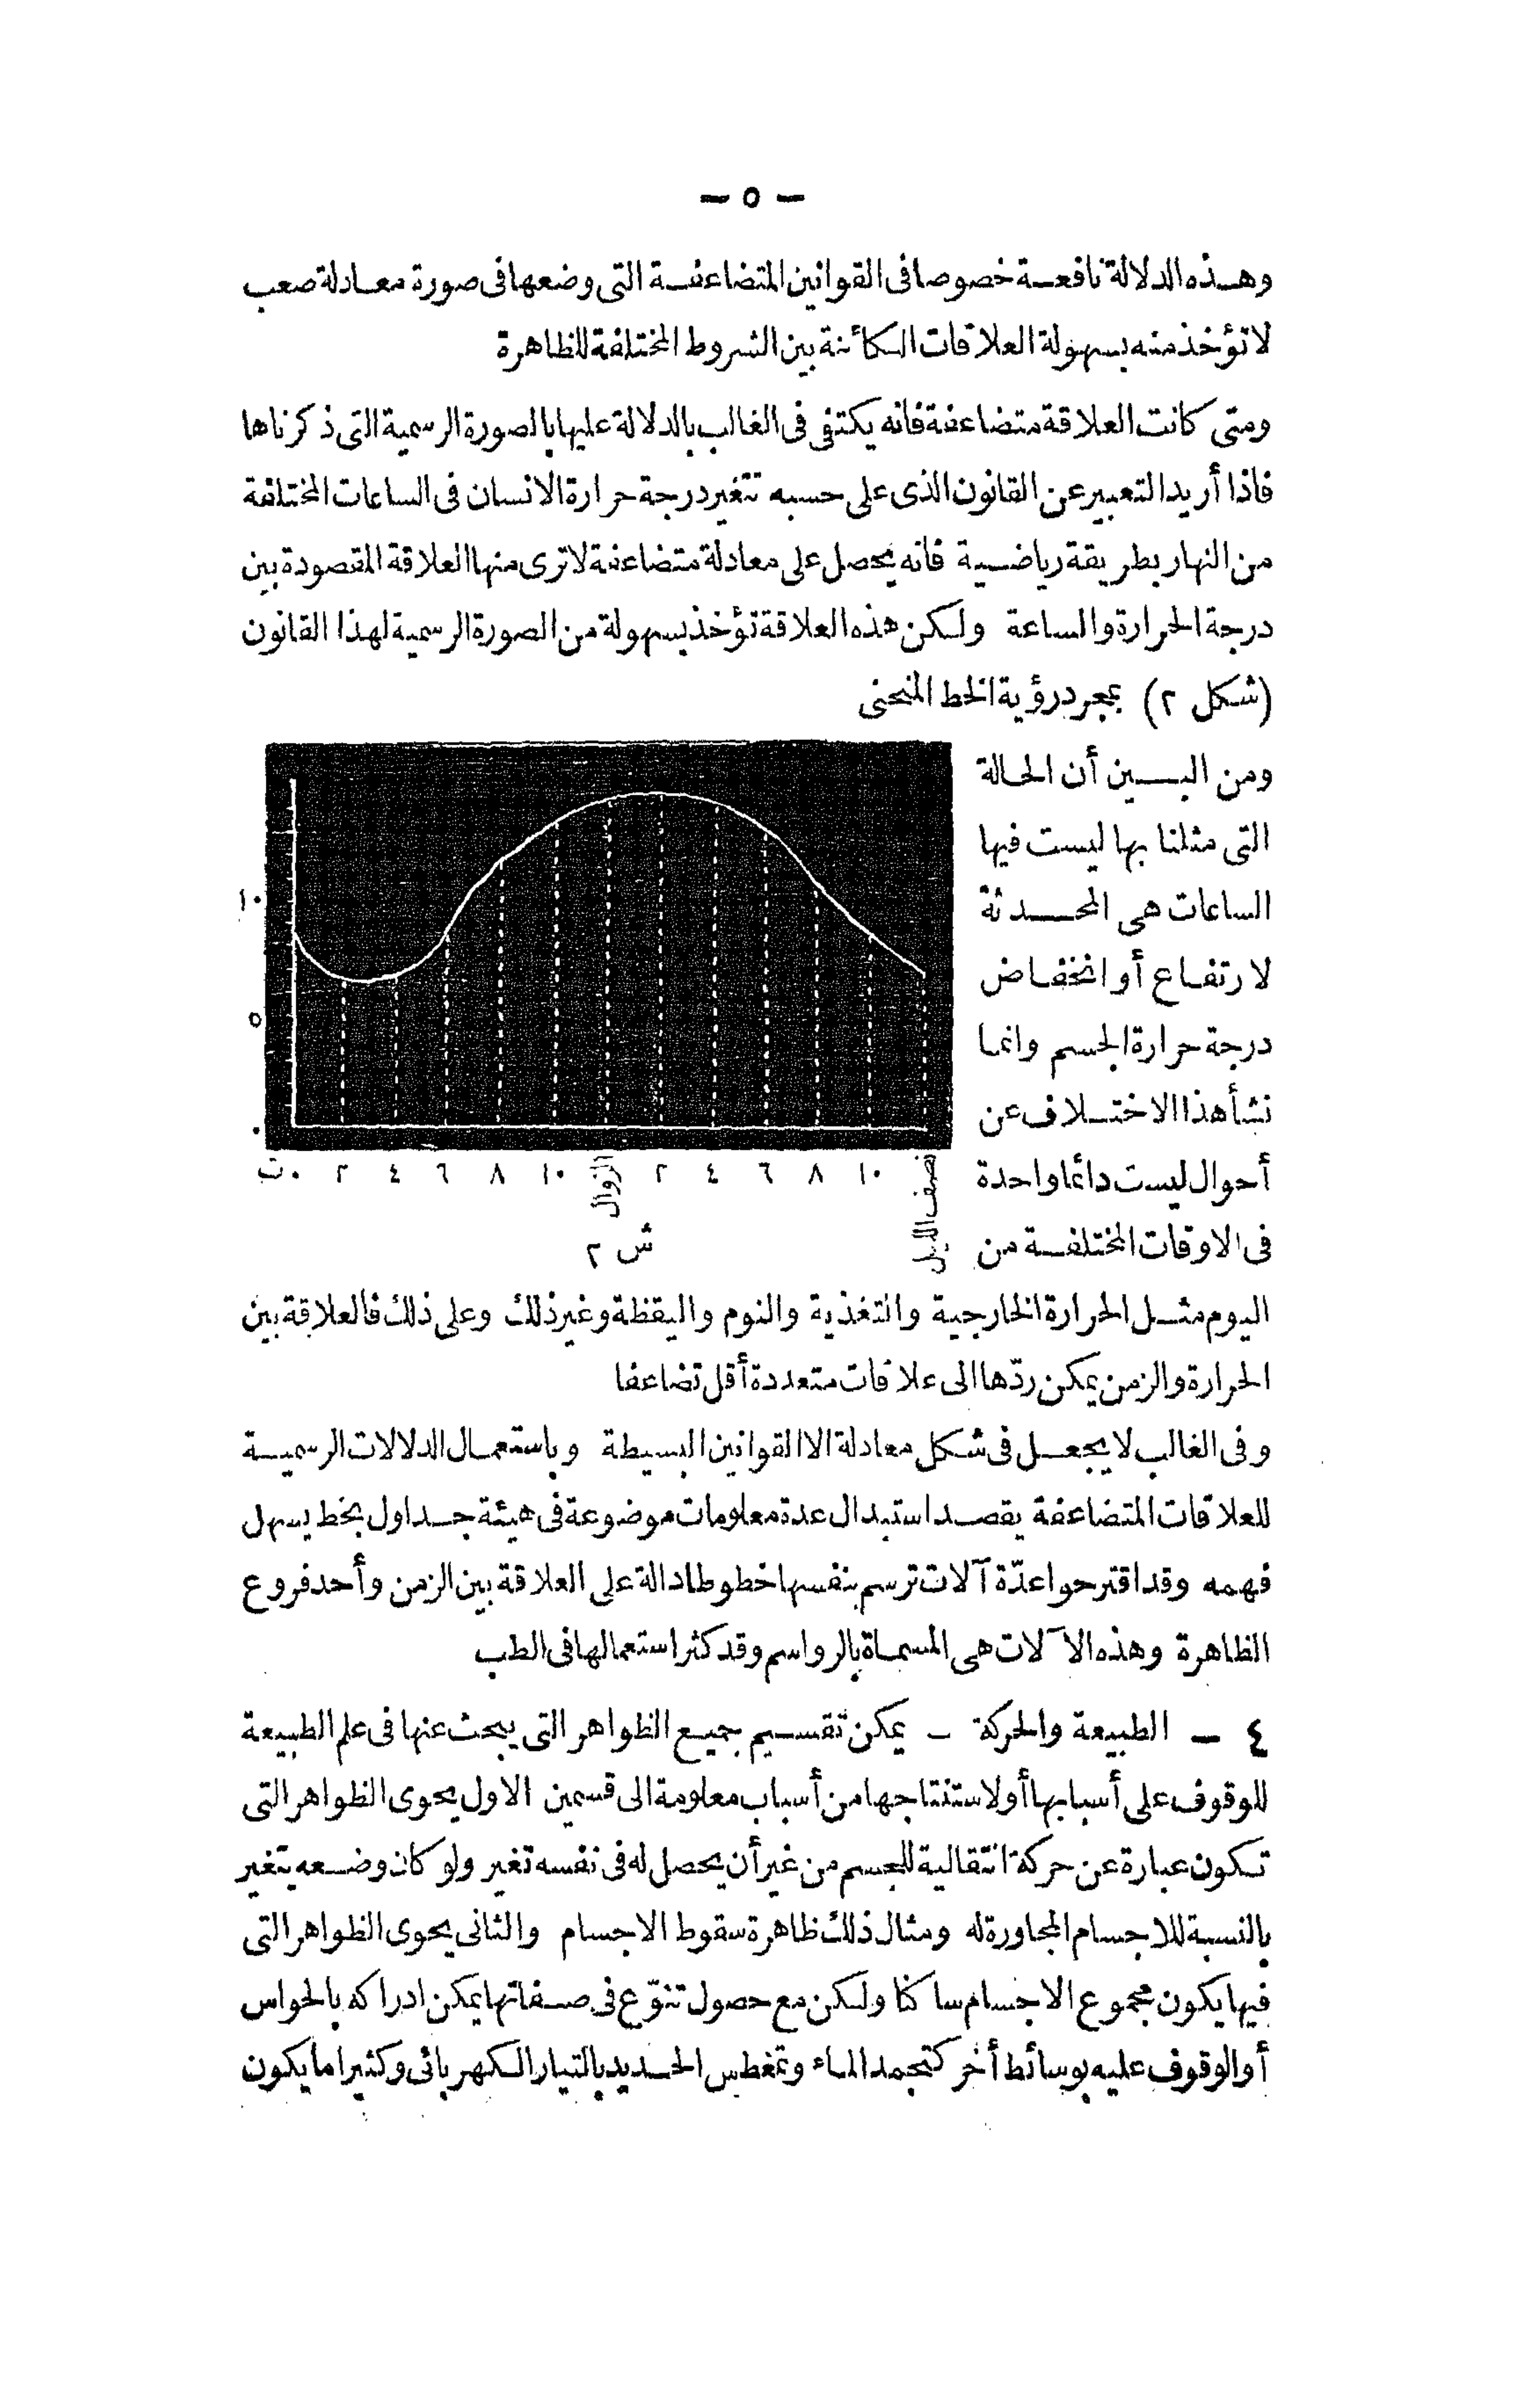 — ٥ —
وهذه الدلالة نافعة خصوصا فى القوانين المتضاعفة التى وضعها فى صورة معادلة صعب
لا تؤخذ منه بسهولة العلاقات الكائنة بين الشروط المختلفة للظاهرة
ومتى كانت العلاقة متضاعفة فانه يكتفى فى الغالب بالدلالة عليها بالصورة الرسمية التى ذكرناها
فاذا أريد التعبير عن القانون الذى على حسبه تتغير درجة حرارة الانسان فى الساعات المختلفة
من النهار بطريقة رياضية فانه يحصل على معادلة متضاعفة لا ترى منها العلاقة المقصودة بين
درجة الحرارة والساعة ولكن هذه العلاقة تؤخذ بسهولة من الصورة الرسمية لهذا القانون
(شكل ٢) بمجرد رؤية الخط المنحنى
ومن البين أن الحالة
التى مثلنا بها ليست فيها
الساعات هى المحدثة
لارتفاع أو انخفاض
درجة حرارة الجسم وانما
نشأ هذا الاختلاف عن
أحوال ليست دائما واحدة
فى الاوقات المختلفة من
١٠
٥
٠
ت ٠ ٢ ٤ ٦ ٨ ١٠ الزوال ٢ ٤ ٦ ٨ ١٠ نصف الليل
ش ٢
اليوم مثل الحرارة الخارجية والتغذية والنوم واليقظة وغير ذلك وعلى ذلك فالعلاقة بين
الحرارة والزمن يمكن ردّها الى علاقات متعددة أقل تضاعفا
وفى الغالب لا يجعل فى شكل معادلة الا القوانين البسيطة وباستعمال الدلالات الرسمية
للعلاقات المتضاعفة يقصد استبدال عدة معلومات موضوعة فى هيئة جداول بخط يسهل
فهمه وقد اقترحوا عدّة آلات ترسم بنفسها خطوطا دالة على العلاقة بين الزمن وأحد فروع
الظاهرة وهذه الآلات هى المسماة بالرواسم وقد كثر استعمالها فى الطب
٤ — الطبيعة والحركة - يمكن تقسيم جميع الظواهر التى يبحث عنها فى علم الطبيعة
للوقوف على أسبابها أو لاستنتاجها من أسباب معلومة الى قسمين الاول يحوى الظواهر التى
تكون عبارة عن حركة انتقالية للجسم من غير أن يحصل له فى نفسه تغير ولو كان وضعه يتغير
بالنسبة للاجسام المجاورة له ومثال ذلك ظاهرة سقوط الاجسام والثانى يحوى الظواهر التى
فيها يكون مجموع الاجسام ساكنا ولكن مع حصول تنوّع فى صفاتها يمكن ادراكه بالحواس
أو الوقوف عليه بوسائط أخر كتجمد الماء وتمغطس الحديد بالتيار الكهربائى وكثيرا ما يكون